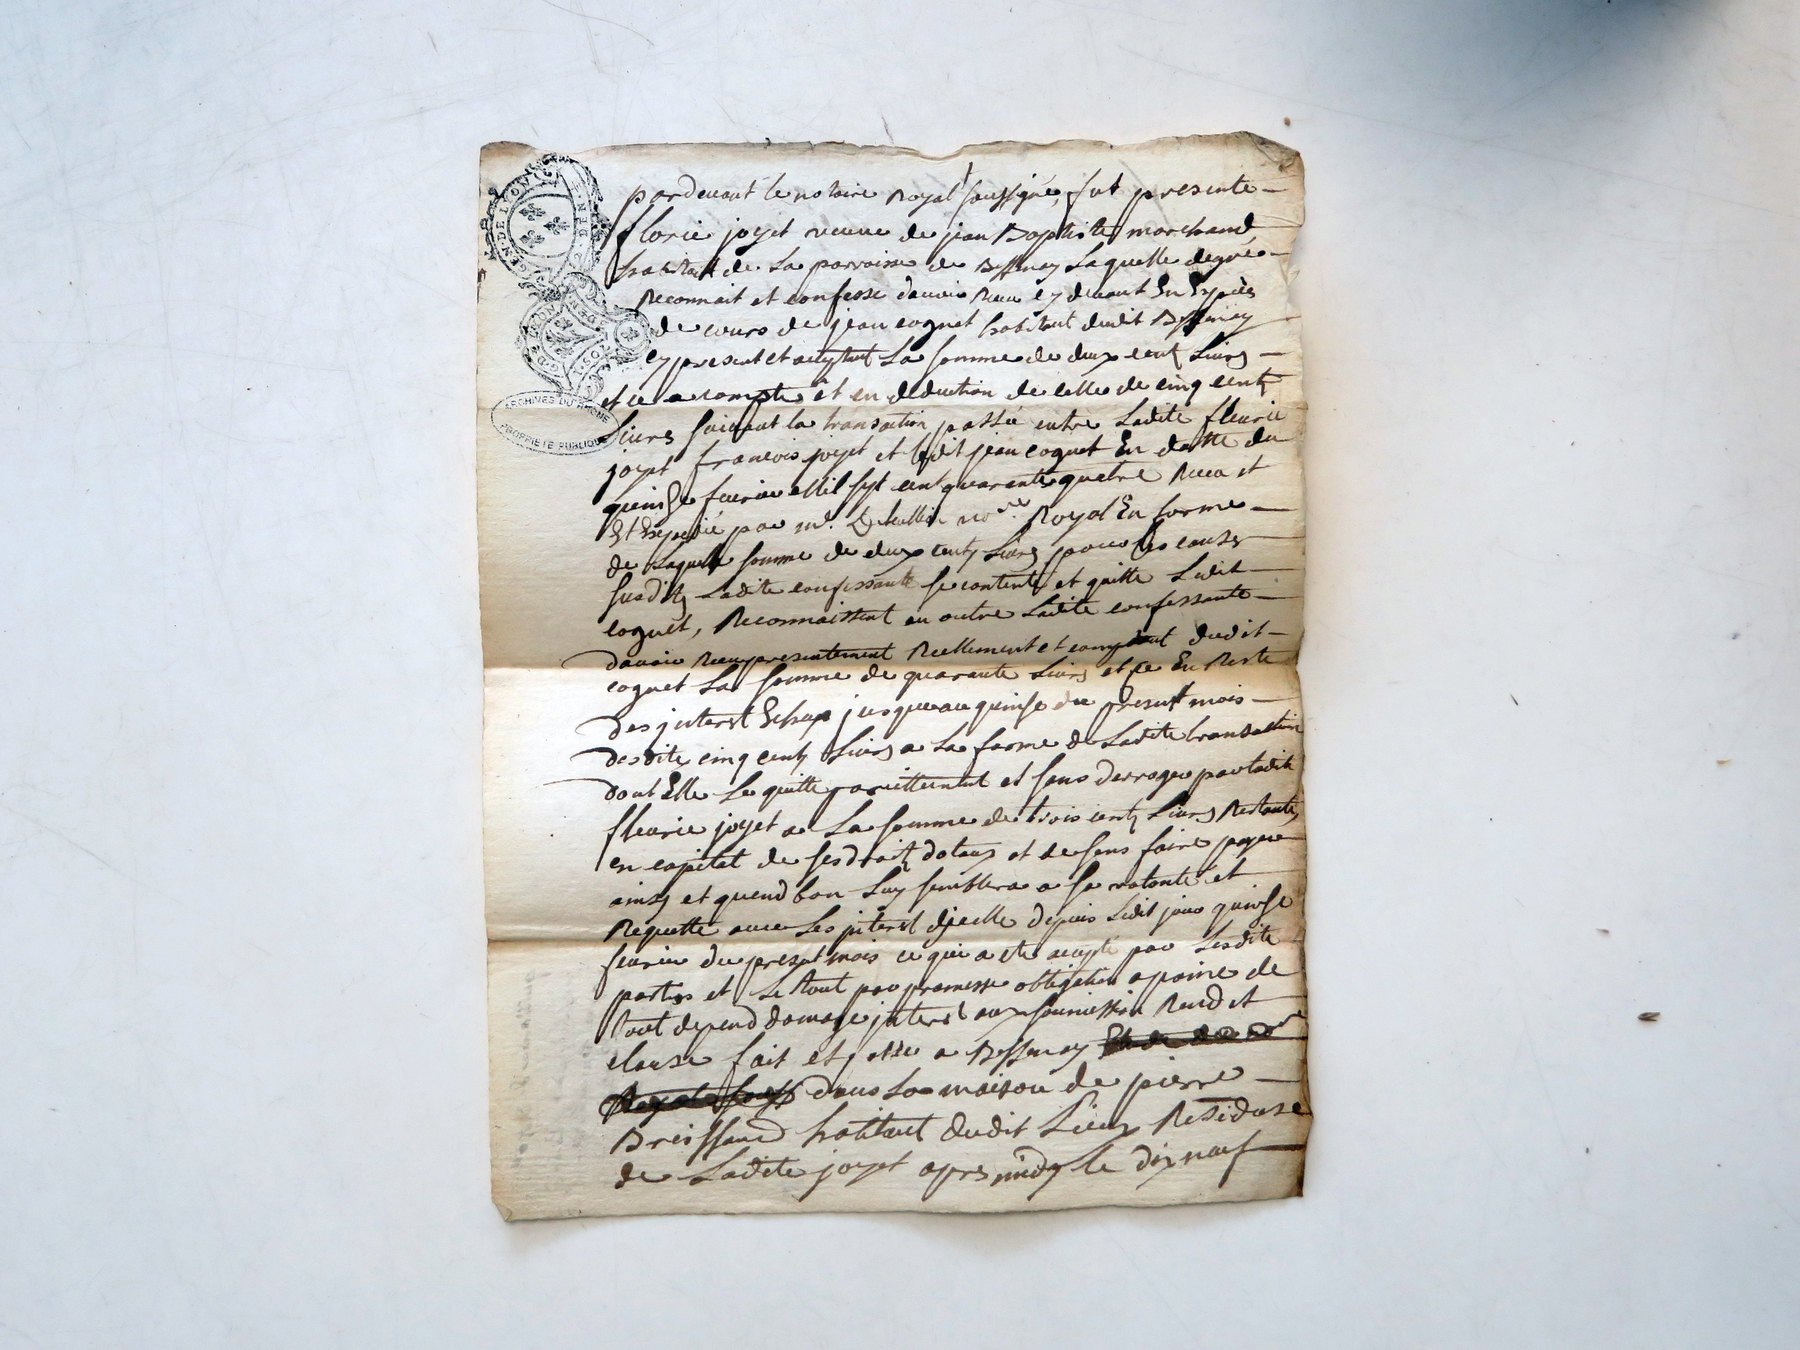 GEN·DE LYON
ARCHIVES DU RHONE
PROPRIÉTÉ PUBLIQUE
pardevant le notaire Royal soussigné, fut presente
florie joyet veuve de jean Baptiste marchand
habitant de La parroisse de Bessenay Laquelle degré
Reconnait et confesse davoir Receu cy devant En Espèces
de cours de jean coquet habitant dudit Bessenay
cy present et acceptant La somme de deux cent Livres
et ce a compte et en deduction de celle de cinq cent
Livres suivant la transaction passée entre Ladite fleurie
joyet francois joyet et ledit jean coquet En datte du
quinse fevrier mil sept cent quarante quatre Receu et
Expedié par me. notre. Royal En forme
de Laquelle somme de deux cent Livres pour les causes
susdites Ladite confessante se contente et quitte Ledit
coquet, Reconnaissent en outre Ladite confessante
davoir Receu presentement Reellement et comptent dudit
coquet La somme de quarante Livres et ce En Reste
des interest Echeus jusqueau quinse du present mois
desdites cinq cent Livres a La forme de Ladite transaction
dont Elle Le quitte pareittement et sans derroger par ladite
fleurie joyet a La somme de trois cent Livres Restantes
en capital de ses droits dotaux et de sens faire payer
ainsy et quend bon Luy semblera a sa volonté et
Requette avec Les interest dicelle depuis Ledit jour quinse
fevrier du present mois ce qui a ete accepté par Lesdites
parties et Le tout par promesse obligation a peine de
tout depend domage interest aux soumission Rend et
clause fait et passé a Bessenay
dans La maison de pierre
Breissand habitant dudit Lieux Residense
de Ladite joyet apres midy le dix neuf